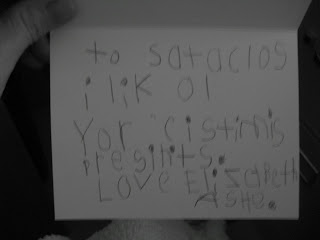 to sataclos
i lik ol
Yor cistimis
presihts.
Love Elizabeth
Ashe.